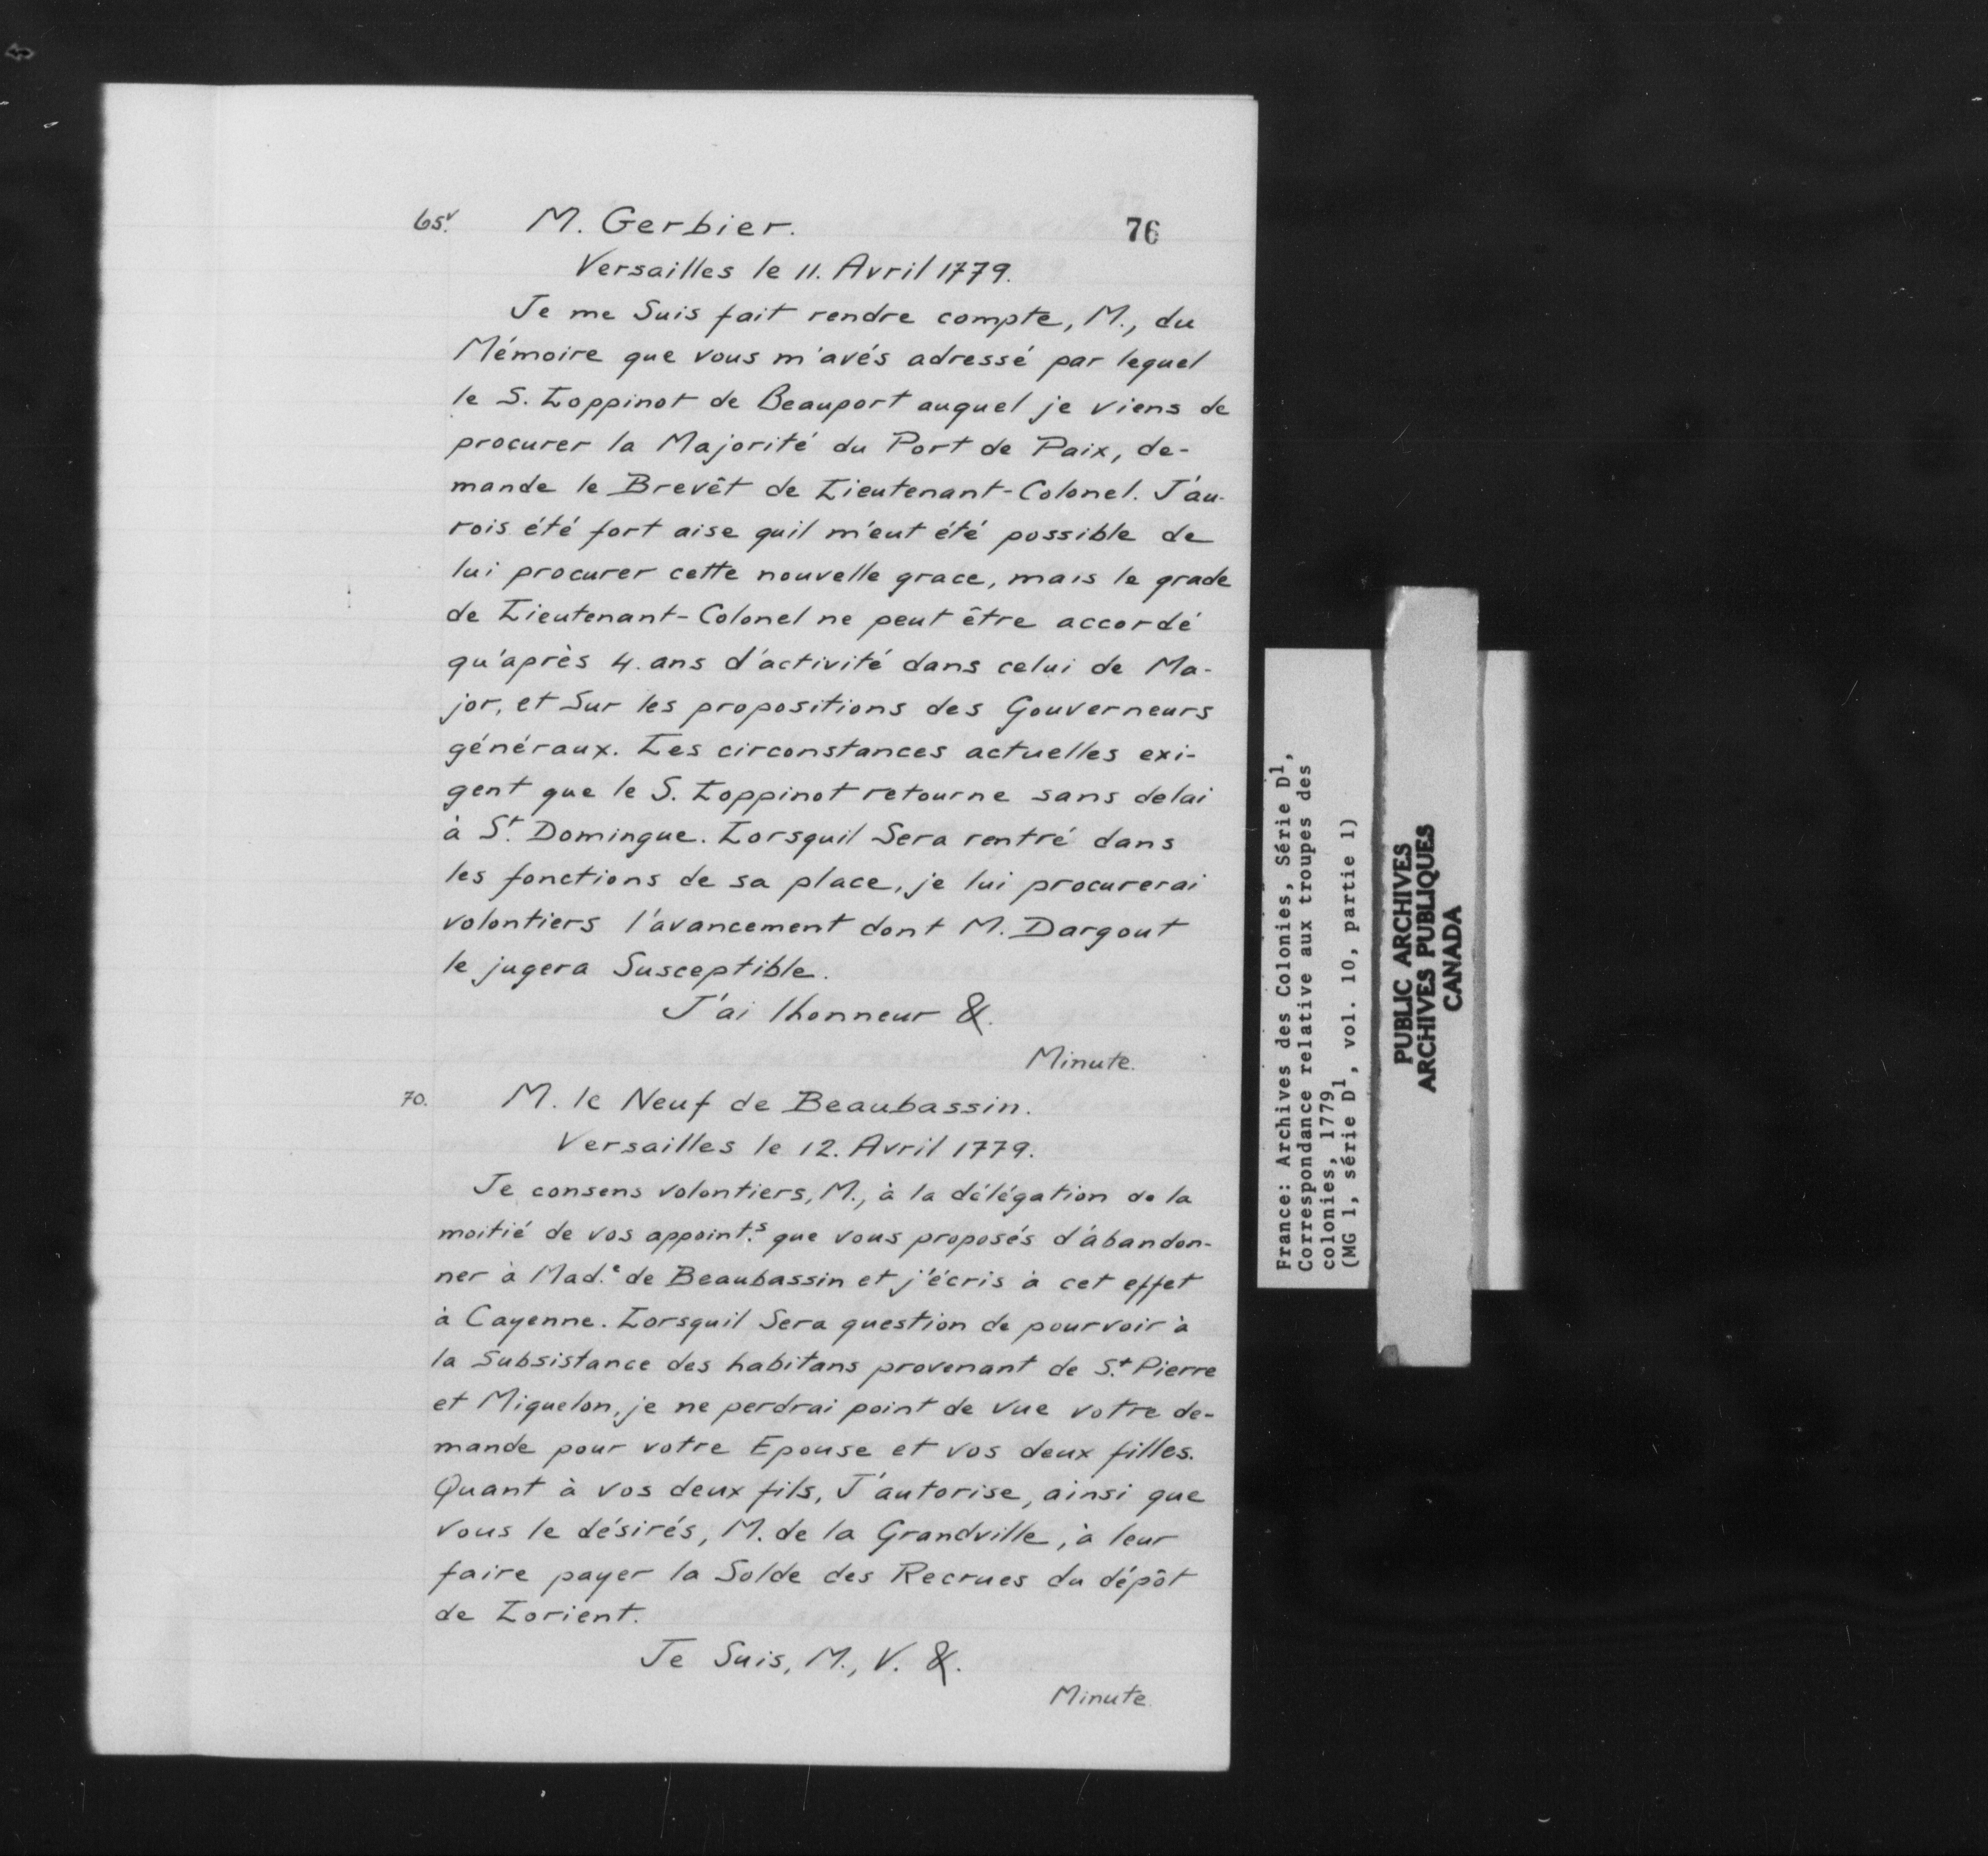 65v. M. Gerbier. 76
Versailles le 11. Avril 1779.
Je me Suis fait rendre compte, M., du
Mémoire que vous m'avés adressé par lequel
le S. Loppinot de Beauport auquel je viens de
procurer la Majorité du Port de Paix, de-
mande le Brevêt de Lieutenant-Colonel. J'au-
rois été fort aise quil m'eut été possible de
lui procurer cette nouvelle grace, mais le grade
de Lieutenant-Colonel ne peut être accordé
qu'après 4. ans d'activité dans celui de Ma-
jor, et Sur les propositions des Gouverneurs
généraux. Les circonstances actuelles exi-
gent que le S. Loppinot retourne sans delai
à St. Domingue. Lorsquil Sera rentré dans
les fonctions de sa place, je lui procurerai
volontiers l'avancement dont M. Dargout
le jugera Susceptible.
J'ai lhonneur &.
Minute.
70. M. le Neuf de Beaubassin.
Versailles le 12. Avril 1779.
Je consens volontiers, M., à la délégation de la
moitié de vos appoint.s que vous proposés d'abandon-
ner à Mad.e de Beaubassin et j'écris à cet effet
à Cayenne. Lorsquil Sera question de pourvoir à
la Subsistance des habitans provenant de St. Pierre
et Miquelon, je ne perdrai point de vue votre de-
mande pour votre Epouse et vos deux filles.
Quant à vos deux fils, J'autorise, ainsi que
vous le désirés, M. de la Grandville, à leur
faire payer la Solde des Recrues du dépôt
de Lorient.
Je Suis, M., V. &.
Minute.
France: Archives des Colonies, Série D1,
Correspondance relative aux troupes des
colonies, 1779
(MG 1, série D1, vol. 10, partie 1)
PUBLIC ARCHIVES
ARCHIVES PUBLIQUES
CANADA